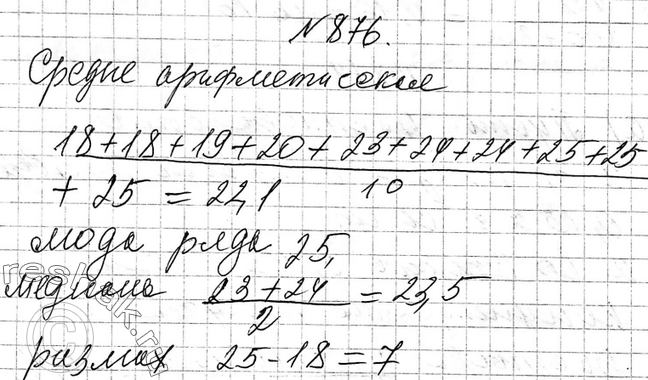 № 876.
Средне арифметисекая
18+18+19+20+23+24+24+25+25
+25 = 22,1 10
мода ряда 25,
медиана 23+24 / 2 = 23,5
размах 25-18=7